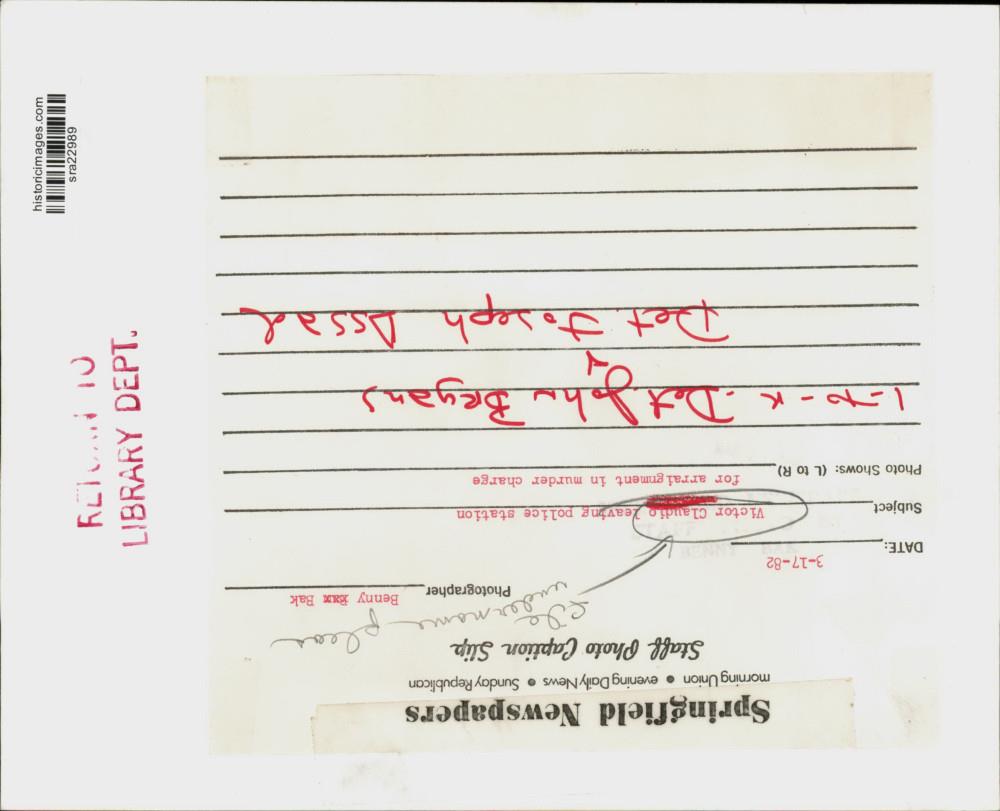 Springfield Newspapers
morning Union • evening Daily News • Sunday Republican
Staff Photo Caption Slip
file under name please
Photographer Benny Bak
DATE: 3-17-82
Subject Victor Claudio leaving police station
for arraignment in murder charge
Photo Shows: (L to R)
Det John Bryans
Det. Joseph Assad
STAFF
BENNY BAK
historicimages.com
sra22989
RETURN TO
LIBRARY DEPT.